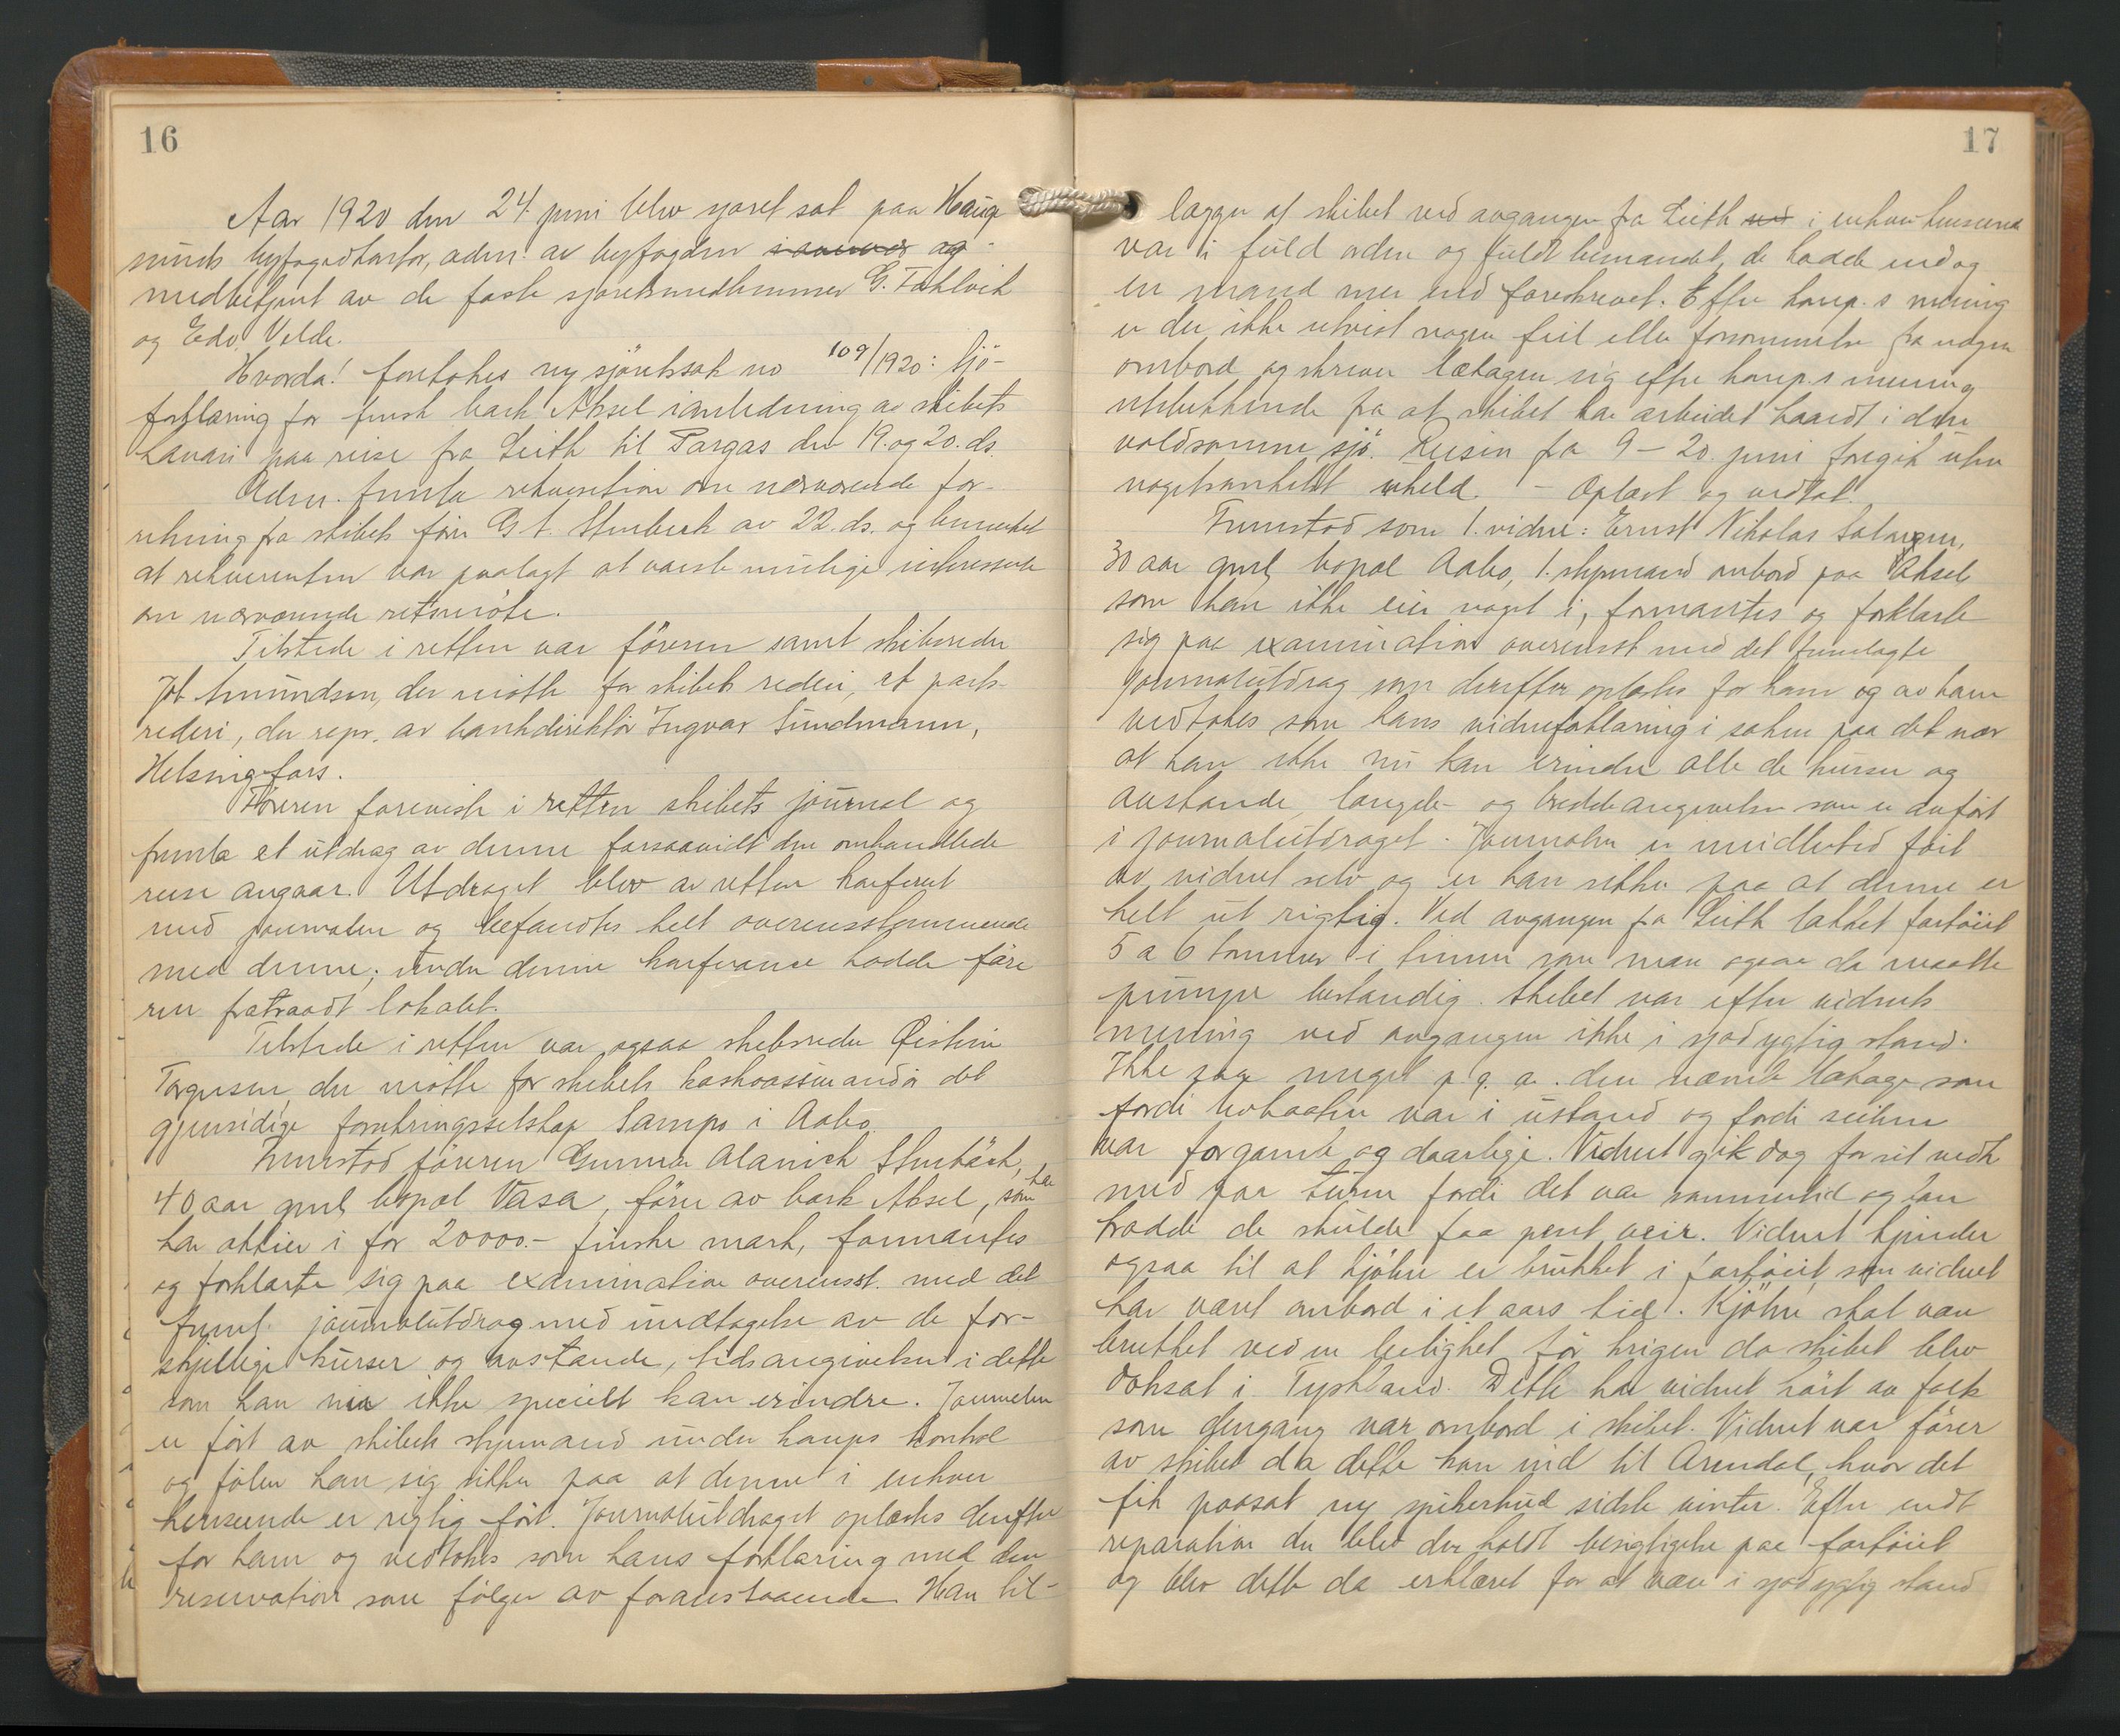 16
Aar 1920 den 24. juni blev sjøret sat paa Hauge
sunds byfogedkontor, adm. av byfogden og
medbetjent av de faste sjøretsmedlemmer G. Fahlvik
og Edv. Velde.
Hvorda! foretokes ny sjöretssak no 109/1920: Sjö-
forklaring for finsk bark Aksel i anledning av skibets
havari paa reise fra Leith til Pargas den 19. og 20. ds.
Adm. fremla rekvisition om nærværende for-
retning fra skibets förer G. A. Stenbeck av 22. ds. og bemerket
at rekvirenten var paalagt at varsle mulige interesserte
om nærværende retsmöte.
Tilstede i retten var föreren samt skibsreder
Job Amundsen, der mötte for skibets rederi, et parts-
rederi, der repr. av bankdirektör Ingvar Sundmann,
Helsingfors.
Föreren foreviste i retten skibets journal og
fremla et utdrag av denne forsaavidt den omhandlede
reise angaar. Utdraget blev av retten konferert
med journalen og befandtes helt overensstemmende
med denne; under denne konferance hadde före
ren fratraadt lokalet.
Tilstede i retten var ogsaa skibsreder Øistein
Torgersen, der mötte for skibets kaskoassurandör det
gjensidige forsikringsselskap Sampo i Aabo.
Fremstod föreren Gunnar Alarick Stenbäck,
40 aar gml, bopæl Vasa, förer av bark Aksel, som han
har aktier i for 20000.- finske mark, formantes
og forklarte sig paa examination overensst. med det
freml. journalutdrag med undtagelse av de for-
skjellige kurser og avstande, tidsangivelser i dette
som han nu ikke specielt kan erindre. Journalen
er fört av skibets styrmand under komps kontrol
og föler han sig sikker paa at denne i enhver
henseende er rigtig fört. Journalutdraget oplæstes derefter
for ham og vedtokes som hans forklaring med den
reservation som fölger av foranstaaende. Han til-
17
lægger at skibet ved avgangen fra Leith i enhver henseende
var i fuld orden og fuldt bemandet, de hadde endog
en mand mer end foreskrevet. Efter komp.s mening
er der ikke utvist nogen feil eller forsømmelse fra nogen
ombord og skriver lækagen sig efter komp.s mening
utelukkende fra at skibet har arbeidet haardt i den
voldsomme sjö. Reisen fra 9 - 20. juni foregik uten
nogetsomhelst uheld. - Oplæst og vedtat.
Fremstod som 1. vidne: Ernst Nikolas
30 aar gml, bopæl Aabo, 1. styrmand ombord paa Aksel
som han ikke eier noget i, formantes og forklarte
sig paa examination overensst med det fremlagte
journalutdrag som derefter oplæstes for ham og av ham
vedtokes som hans vidneforklaring i saken paa det nær
at han ikke nu kan erindre alle de kurser og
avstande, længde- og breddeangivelser som er anfört
i journalutdraget. Journalen er imidlertid fört
av vidnet selv og er han sikker paa at denne er
helt ut rigtig. Ved avgangen fra Leith lækket fartöiet
5 a 6 tommer i timen som man ogsaa da maatte
pumpe bestandig. Skibet var efter vidnets
mening ved avgangen ikke i sjødygtig stand.
Ikke saa meget p. g. a. den nævnte lækage som
fordi livbaaten var i ustand og fordi seilene
var for gamle og daarlige. Vidnet gik dog for sit vedk
med paa turen fordi det var sommertid og han
trodde de skulde faa pent veir. Vidnet kjender
ogsaa til at kjölen er brukket i fartöiet, som vidnet
har været ombord i et aars tid. Kjölen skal være
brukket ved en leilighet för krigen da skibet blev
doksat i Tyskland. Dette har vidnet hört av folk
som dengang var ombord i skibet. Vidnet var förer
av skibet da dette kom ind til Arendal, hvor det
fik paasat ny spikerhud sidste vinter. Efter endt
reparation der blev der holdt besigtigelse paa fartöiet
og blev dette da erklæret for at være i sjødygtig stand